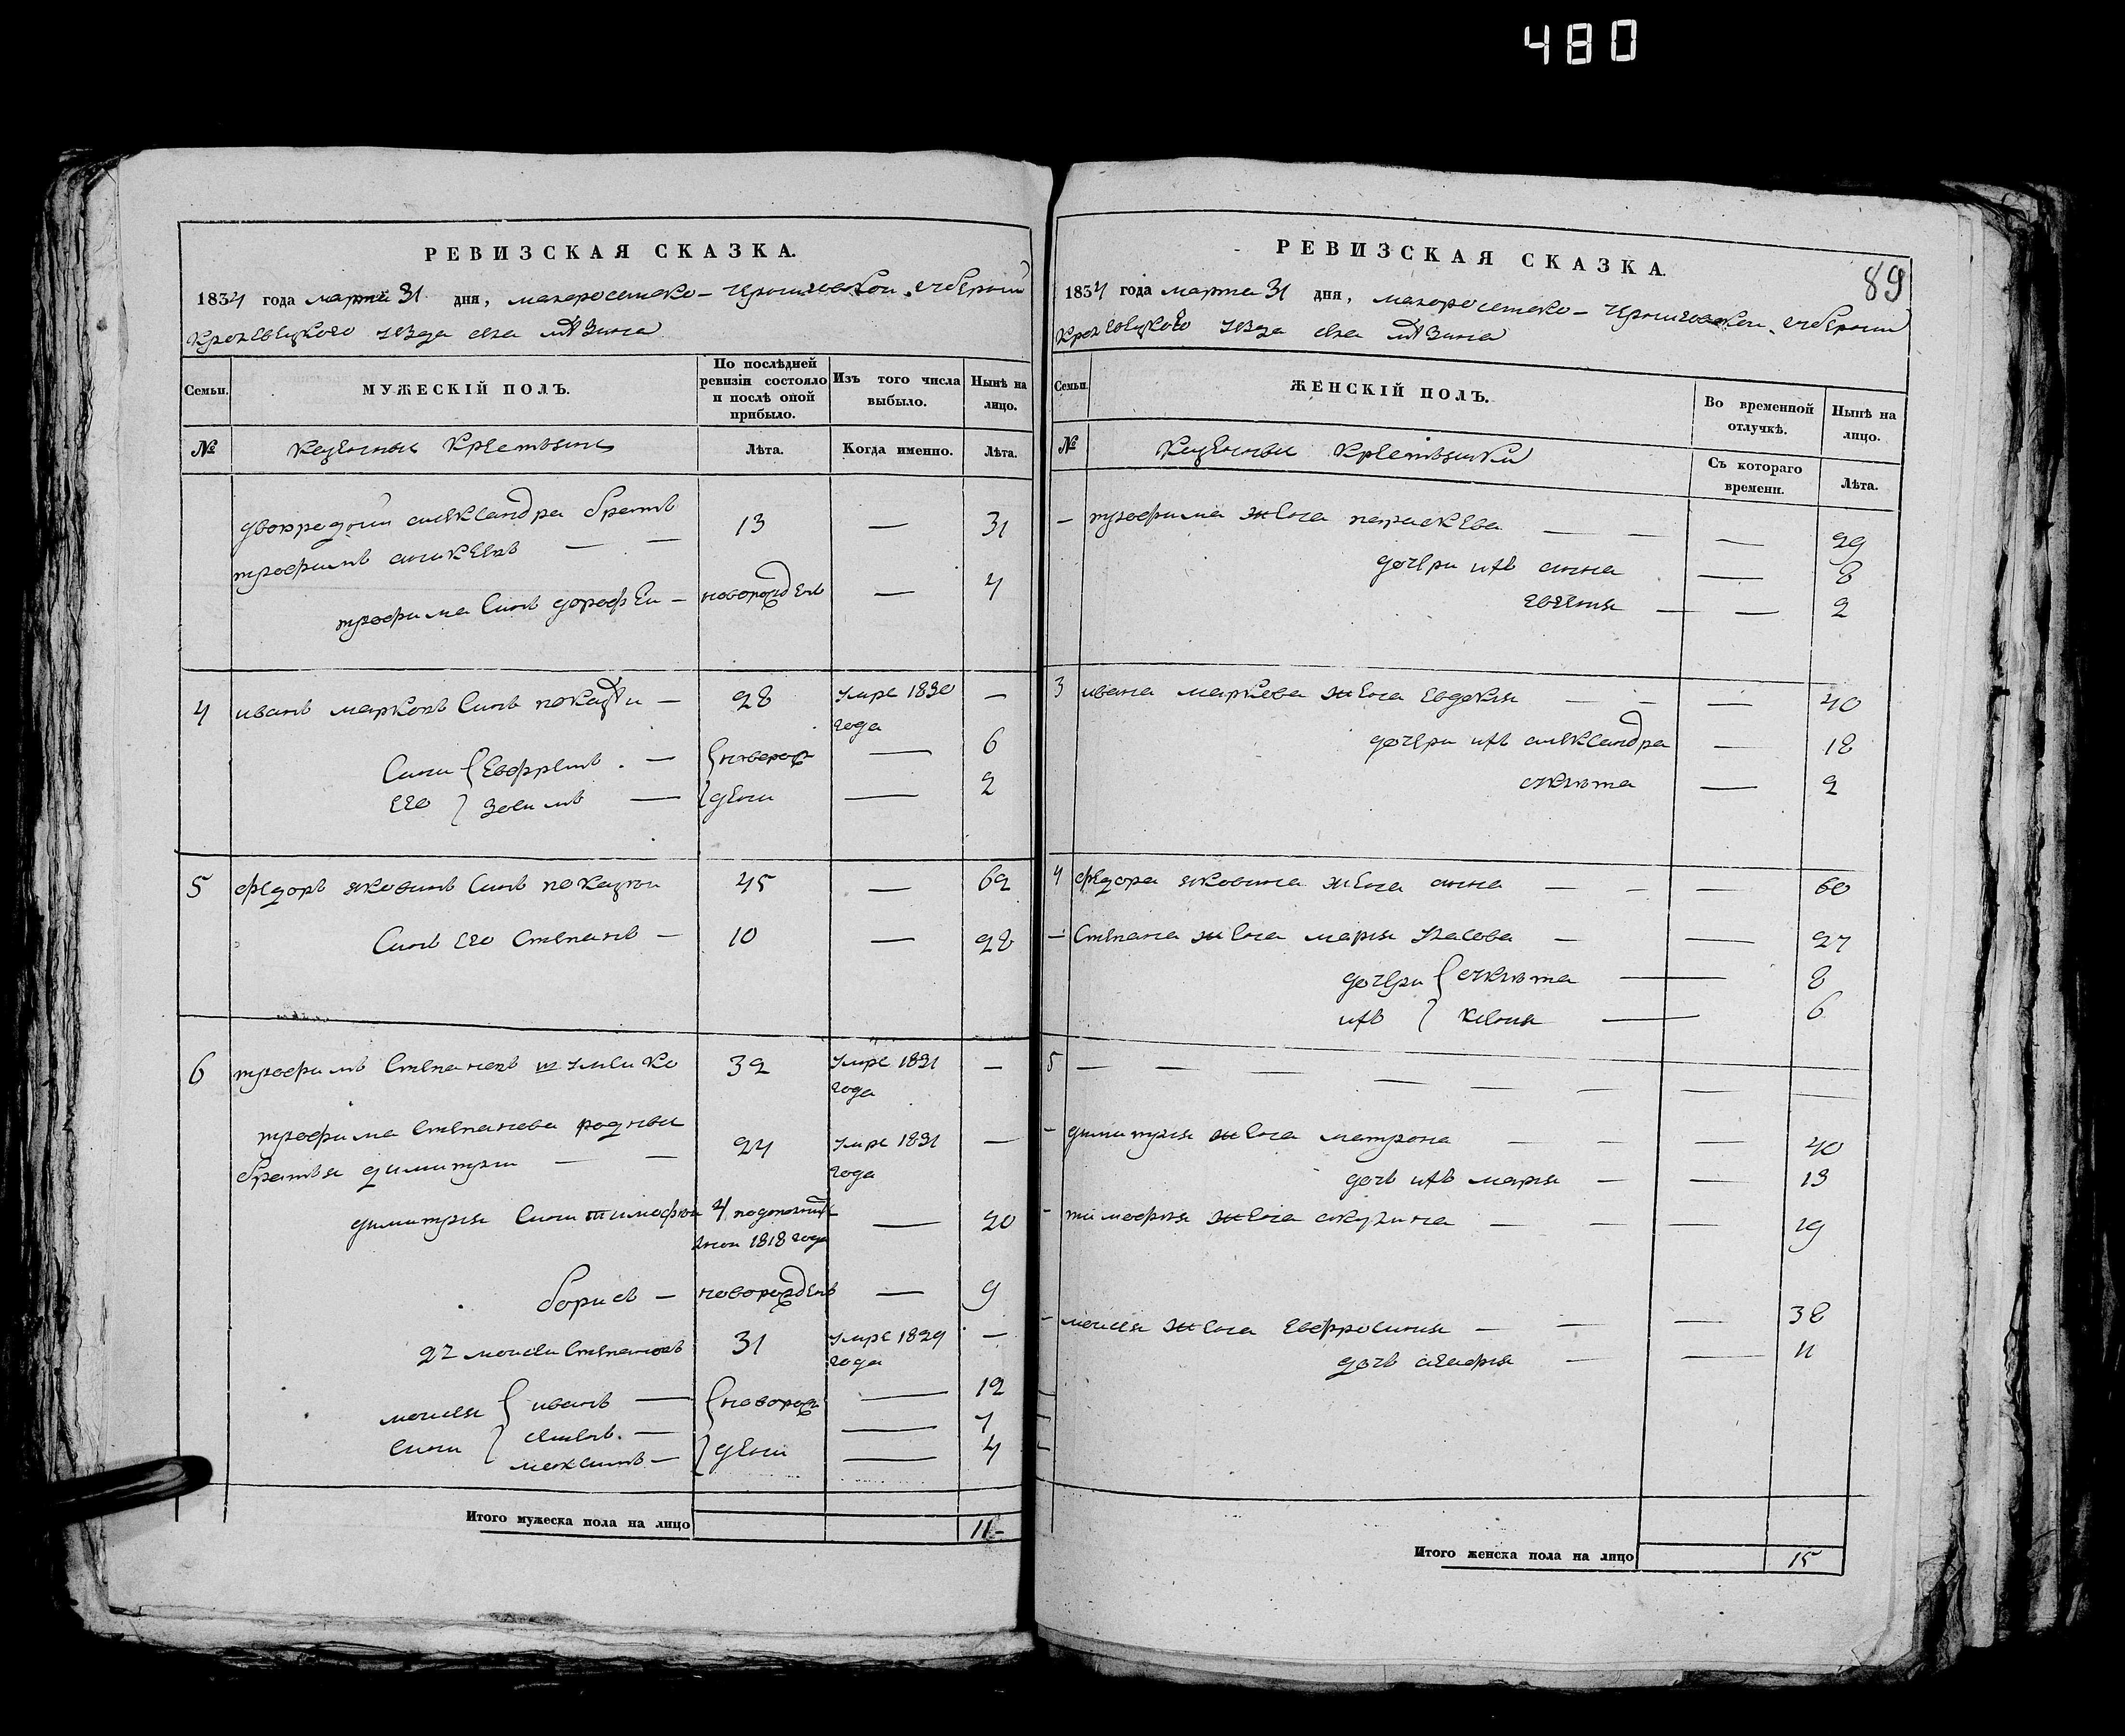 480
РЕВИЗСКАЯ СКАЗКА.
1834 года марта 31 дня, малоросииско-Черниговской губернии
Кролевецкого уезда села мѣзина
Семьи.
МУЖЕСКІЙ ПОЛЪ.
По послѣдней ревизіи состояло и послѣ оной прибыло.
Изъ того числа выбыло.
Нынѣ на лицо.
№
Казенныи Крестьяни
Лѣта.
Когда именно.
Лѣта.
двоюредний александра братъ
трофимъ аникеевъ — — 13 — 31
трофима Синъ дорофей — новорожденъ — 4
4 иванъ марковъ Синъ — 28 умре 1830 года —
Сини его { Евфремъ — новорож — 6
Зосимъ — дени — 2
5 федоръ яковинъ Синъ 45 — 62
Синъ его Степанъ — 10 — 28
6 трофимъ Степановъ 32 умре 1831 года —
трофима Степанова роднии
братья димитрии — — 24 умре 1831 года —
димитрия Сини тимофеи 4 1818 года — 20
борисъ — новорожденъ — 9
2й моисеи Степановъ 31 умре 1829 года —
моисея сини { иванъ — новорож — 12
— 7
максимъ — дени — 4
Итого мужеска пола на лицо 11
РЕВИЗСКАЯ СКАЗКА.
89
1834 года марта 31 дня, малоросииско-Черниговской губернии
Кролевецкого уезда села мѣзина
Семьи.
ЖЕНСКІЙ ПОЛЪ.
Во временной отлучкѣ.
Нынѣ на лицо.
№
Казенныи Крестьянки
Съ котораго времени.
Лѣта.
— трофима жена параскева — — — 29
дочери ихъ анна — 8
евгения — — 2
3 ивана маркова жена Евдокия — — — 40
дочери ихъ александра — 18
— 2
4 федора яковина жена анна — — — 60
— Степана жена мария Власова — — 27
дочери ихъ { — 8
ксения — 6
5 — — — — — — —
— димитрия жена матрона — — — 40
дочь ихъ мария — — 13
— тимофея жена акулина — — — 19
— моисея жена Евфросиния — — — 38
дочь агафия — — 11
Итого женска пола на лицо 15